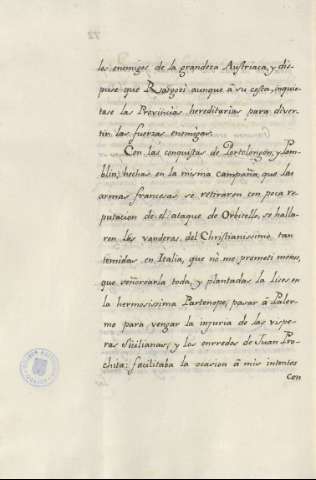 los enemigos de la grandeza Austriaca, y dis
puse que Ragozi aunque â su costa, inquie
tase las Provincias hereditarias para diver
tir las fuerzas enemigas.
Con las conquistas de Portolongon, y Pom
blin, hechas en la misma campaña, que las
armas francesas se retiraron con poca re
putacion de el ataque de Orbitelo, se halla
ron las vanderas del Christianissimo tan
temidas en Italia, que no me prometi menos,
que señorearla toda, y plantadas las Lises en
la hermosissima Partenope, pasar â Paler
mo para vengar la injuria de las vispe
ras Sicilianas, y los enrredos de Juan Pro
chita: facilitaba la ocasion â mis intentos
con